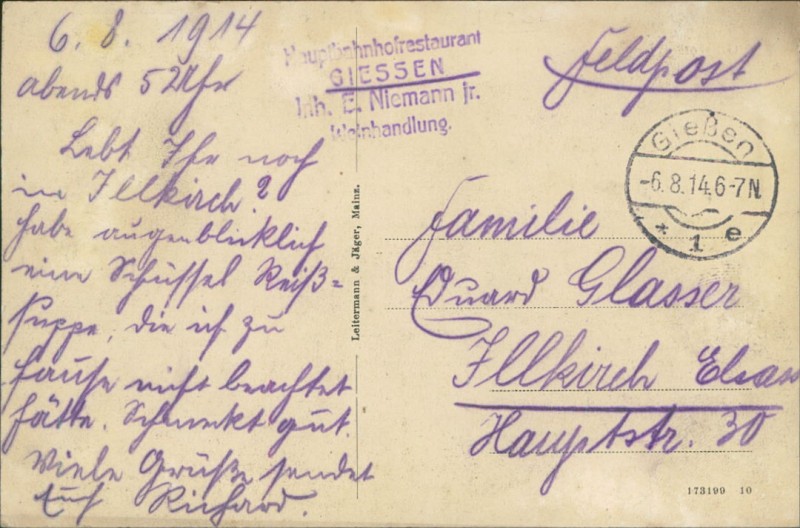 6. 8. 1914
abends 5 Uhr
Lebt Ihr noch
in Illkirch?
habe augenblicklich
eine Schüssel Reiß-
suppe, die ich zu
hause nicht beachtet
hätte. Schmeckt gut.
Viele Grüße sendet
Euch Richard.
Hauptbahnhofrestaurant
GIESSEN
Inh. E. Niemann jr.
Weinhandlung.
Leitermann & Jäger, Mainz.
Feldpost
Gießen
-6.8.14.6-7N.
* 1 e
Familie
Eduard Glasser
Illkirch Elsass
Hauptstr. 30
173199 10